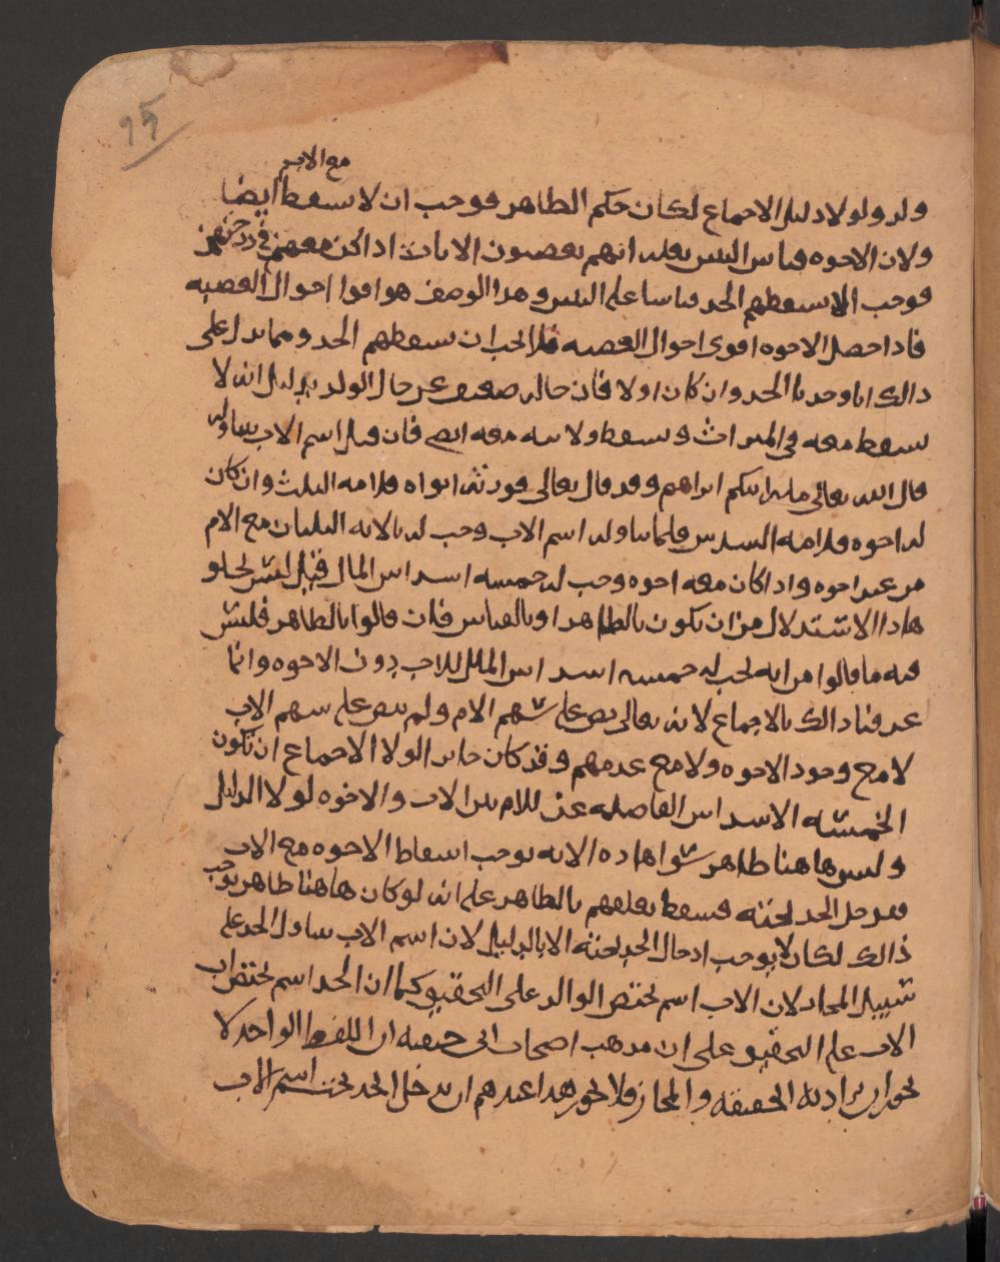 95
مع الاب
ولد ولولا دليل الاجماع لكان حكم الظاهر فوجب ان لا يسقط ايضا
ولان الاخوه قياس البنين بعله انهم يعصبون الاناث اذا كن معهم في درجتهن
فوجب الا يسقطهم الجد قياسا على البنين وهذا الوصف هو اقوا احوال العصبه
فاذا حصل الاخوه اقوى احوال العصبه فلا يجب ان يسقطهم الجد ومما يدل على
ذالك انا وجدنا الجد وان كان اولا فان حاله ضعيف عن حال الولد بدليل انه لا
يسقط معه في الميراث ويسقط ولا بيه معه فان قيل اسم الاب يتناوله
قال الله تعالى مله ابيكم ابراهيم وقد قال تعالى فورثه ابواه فلامه الثلث وان كان
له اخوه فلامه السدس فلما تناوله اسم الاب وجب له بالايه الثلثان مع الام
من غير اخوه واذا كان معه اخوه وجب له خمسه اسداس المال قيل ليس يخلو
هاذا الاستدلال من ان يكون بالظاهر او بالقياس فان قالوا بالظاهر فليس
فيه ما قالوا من انه يجب له خمسه اسداس المال للاب دون الاخوه وانما
عرفنا ذالك بالاجماع لانه تعالى نص على سهم الام ولم ينص على سهم الاب
لا مع وجود الاخوه ولا مع عدمهم وقد كان جايز الولا الاجماع ان تكون
الخمسه الاسداس الفاضله عن للام بين الاب والاخوه لولا الدليل
وليس هاهنا ظاهر سوا هاذه الايه يوجب اسقاط الاخوه مع الاب
فيدخل الجد تحته فسقط تعلقهم بالظاهر على انه لو كان هاهنا ظاهر يوجب
ذالك لكان لا يوجب ادخال الجد تحته الا بالدليل لان اسم الاب يتناول الجد على
سبيل المجاز لان الاب اسم يختص الوالد على التحقيق كما ان الجد اسم يختص اب
الاب على التحقيق على ان مذهب اصحاب ابي حنيفه ان اللفظ الواحد لا
يجوز ان يراد به الحقيقه والمجاز فلا يجوز هذا عندهم ان يدخل الجد تحت اسم الاب